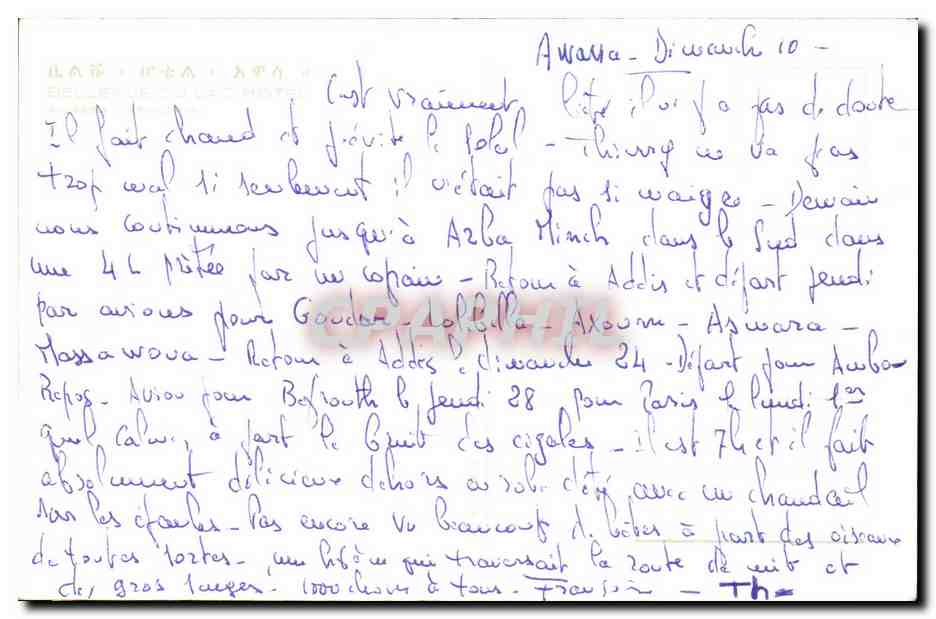 Awassa - Dimanche 10 -
ቤልቩ · ሆቴል · አዋሳ
BELLEVUE DU LAC HOTEL
C'est vraiment l'été il n'y a pas de doute
Il fait chaud et j'évite le soleil - Thierry ne va pas
trop mal si seulement il n'était pas si maigre - Demain
nous continuons jusqu'à Arba Minch dans le Sud dans
une 4 L prêtée par un copain - Retour à Addis et départ jeudi
par avions pour Gondar - Lalibella - Axoum - Asmara -
Massawoua - Retour à Addes le dimanche 24 - Départ pour Amba-
Repos - Avion pour Beyrouth le jeudi 28 pour Paris le lundi 1er
quel calme, à part le bruit des cigales - il est 7h et il fait
absolument délicieux dehors en robe d'été avec un chandail
sur les épaules - Pas encore vu beaucoup de bêtes à part des oiseaux
de toutes sortes - une hyène qui traversait la route de nuit et
des gros singes - 1000 choses à tous - - Th -
CPAPHIL